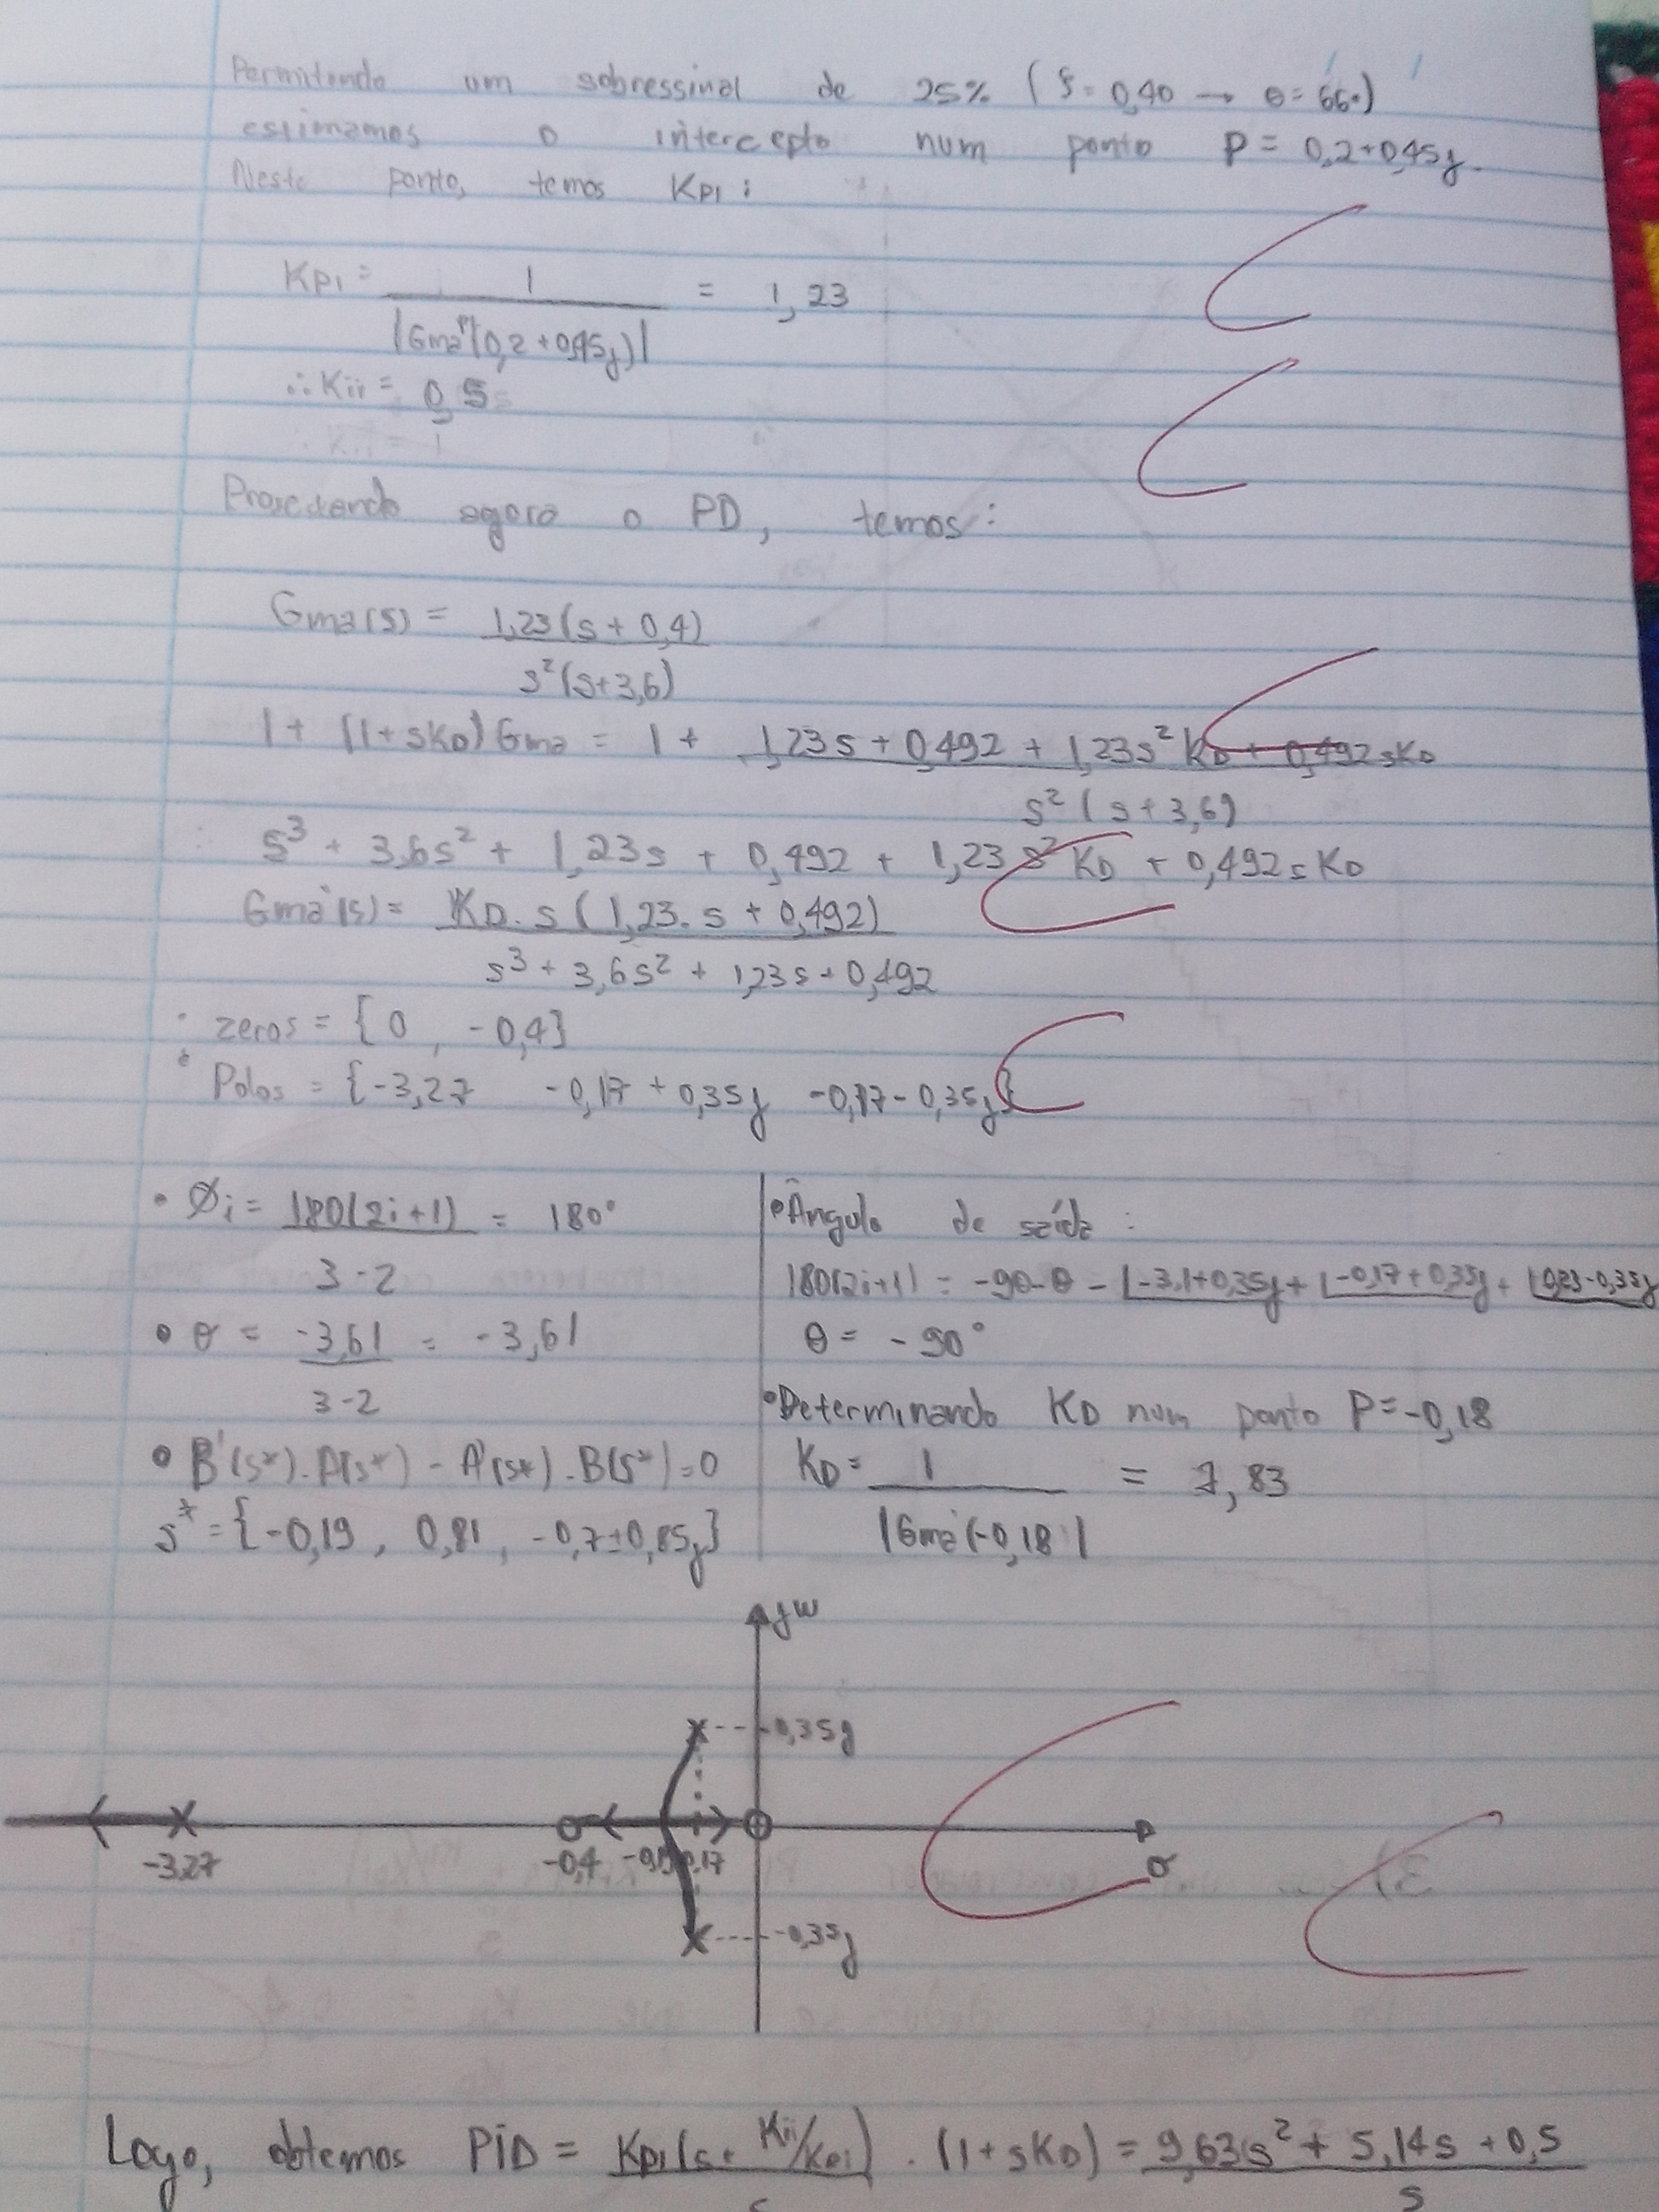 Permitindo um sobressinal de 25% (ξ = 0,40 → θ = 66°)
estimamos o intercepto num ponto P = 0,2+0,45j.
Neste ponto, temos Kp1:
Kp1 = 1 / |Gma'(0,2+0,45j)| = 1,23
∴ Kii = 0,5
Projetando agora o PD, temos:
Gma(s) = 1,23(s + 0,4)
s²(s+3,6)
1 + (1+sKD)Gma = 1 + 1,23s + 0,492 + 1,23s²KD + 0,492sKD
s²(s+3,6)
s³ + 3,6s² + 1,23s + 0,492 + 1,23s²KD + 0,492sKD
Gma'(s) = KD.s(1,23.s + 0,492)
s³ + 3,6s² + 1,23s + 0,492
• zeros = {0, -0,4}
• Polos = {-3,27 -0,17 + 0,35j -0,17 - 0,35j}
• Øi = 180(2i+1) = 180°
3-2
• σ = -3,61 = -3,61
3-2
• B'(s*).A(s*) - A'(s*).B(s*) = 0
s* = {-0,19, 0,81, -0,7±0,85j}
• Ângulo de saída:
180(2i+1) = -90-θ - ∠-3,1+0,35j + ∠-0,17+0,35j + ∠0,23-0,35j
θ = -90°
• Determinando KD num ponto P = -0,18
KD = 1 = 7,83
|Gma'(-0,18)|
jw
0,35j
-3,27
-0,4 -0,19 -0,17
σ
-0,35j
Logo, obtemos PID = Kp1(s + Kii/Kp1) . (1+sKD) = 9,63s² + 5,14s + 0,5
s s